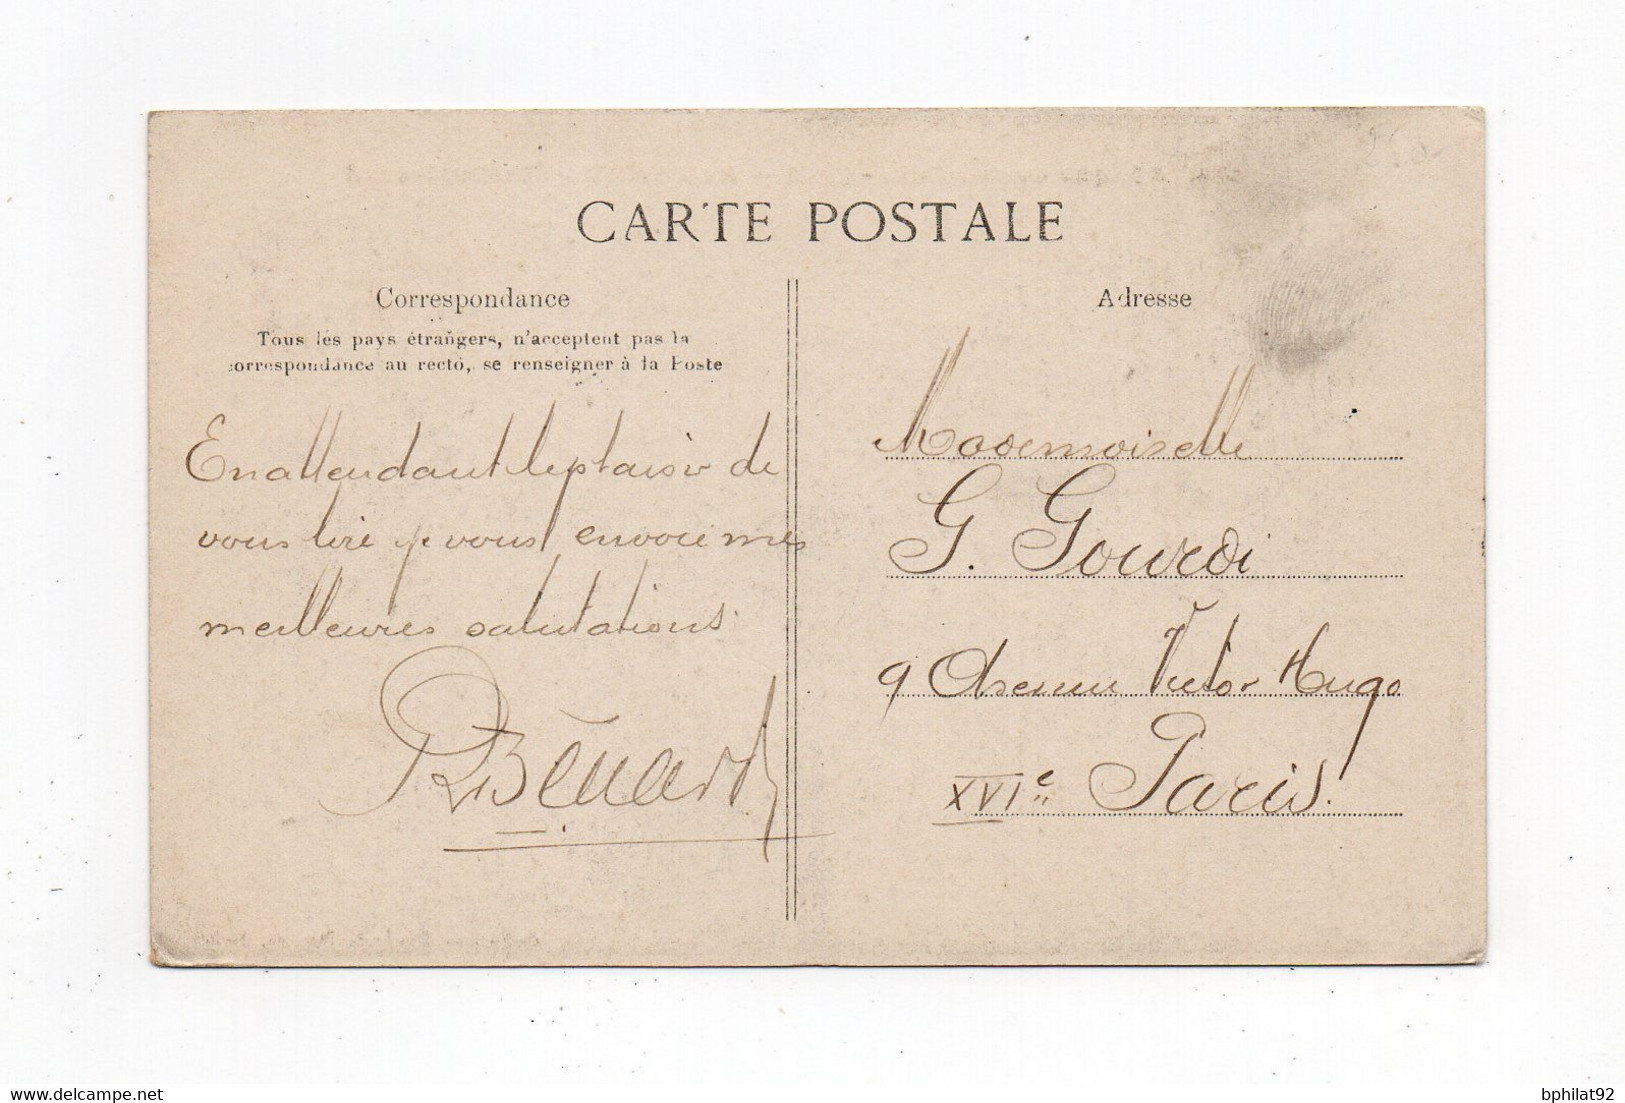 CARTE POSTALE
Correspondance
Tous les pays étrangers, n'acceptent pas la
correspondance au recto, se renseigner à la Poste
En attendant le plaisir de
vous lire je vous envoie mes
meilleures salutations
RBénard
Adresse
Mademoiselle
G. Gourdi
9 Avenue Victor Hugo
XVIe Paris.
the-west-indies.delcampe.net
bphilat92